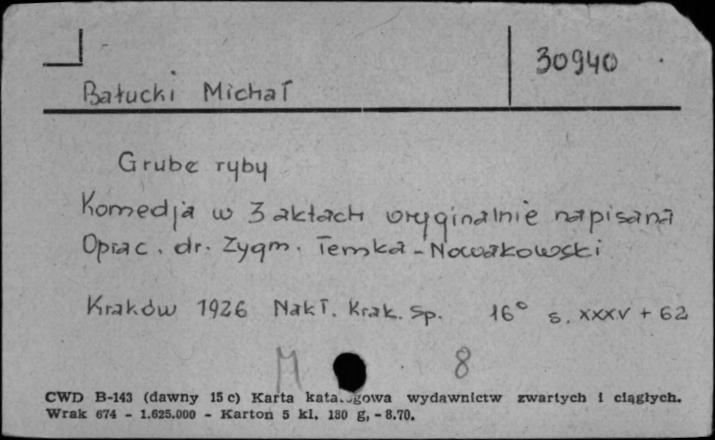 30940
Bałucki Michał
Grube ryby
Komedja w 3 aktach oryginalnie napisana
Oprac. dr. Zygm. Temka-Nowakowski
Kraków 1926 Nakł. Krak. Sp. 16° s. XXXV + 62
M 8
CWD B-143 (dawny 15 c) Karta katalogowa wydawnictw zwartych i ciągłych.
Wrak 674 - 1.625.000 - Karton 5 kl. 180 g, - 8.70.